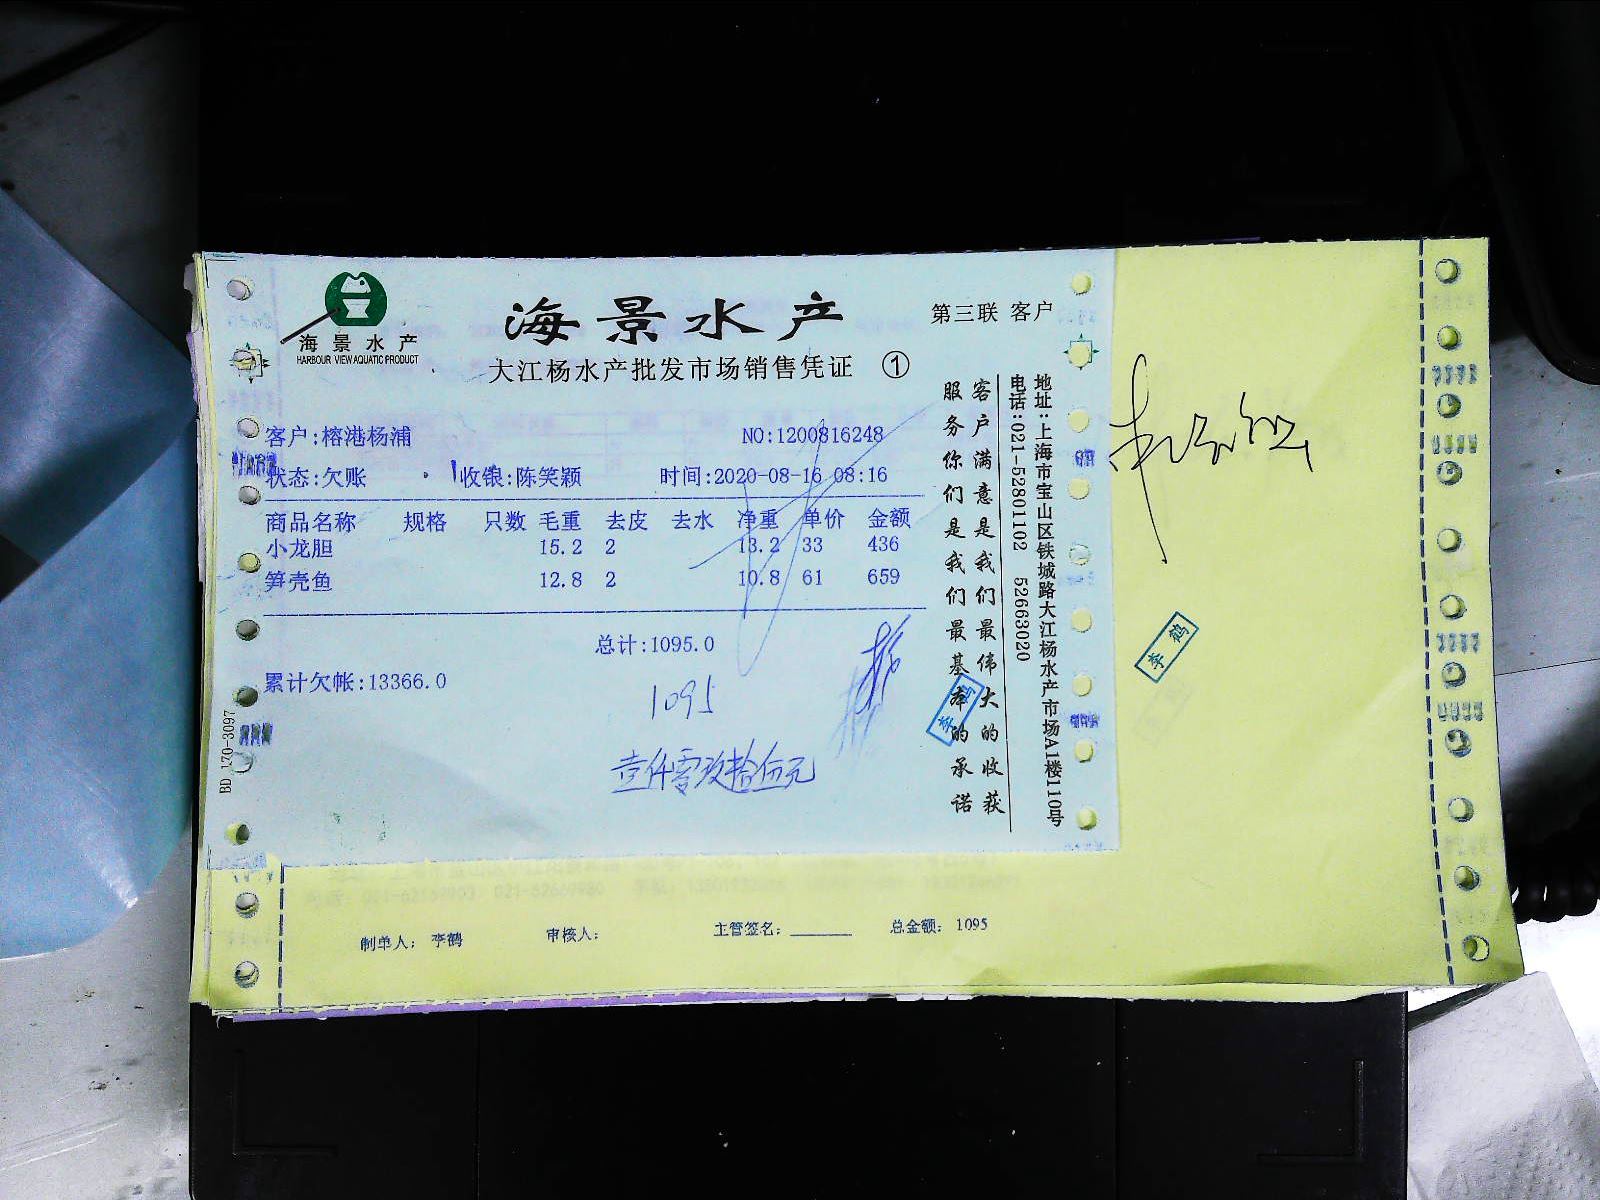 海景水产
HARBOUR VIEW AQUATIC PRODUCT
海景水产
第三联 客户
大江杨水产批发市场销售凭证 ①
客户:榕港杨浦 NO:1200816248
状态:欠账 收银:陈笑颖 时间:2020-08-16 08:16
商品名称 规格 只数 毛重 去皮 去水 净重 单价 金额
小龙胆 15.2 2 13.2 33 436
笋壳鱼 12.8 2 10.8 61 659
总计:1095.0
累计欠帐:13366.0
1095
壹仟零玖拾伍元
BD 170-3097
客户满意是我们最伟大的收获
服务你们是我们最基本的承诺
地址:上海市宝山区铁城路大江杨水产市场A1楼110号
电话:021-52801102 52663020
李鹤
李鹤
制单人: 李鹤 审核人: 主管签名: 总金额: 1095